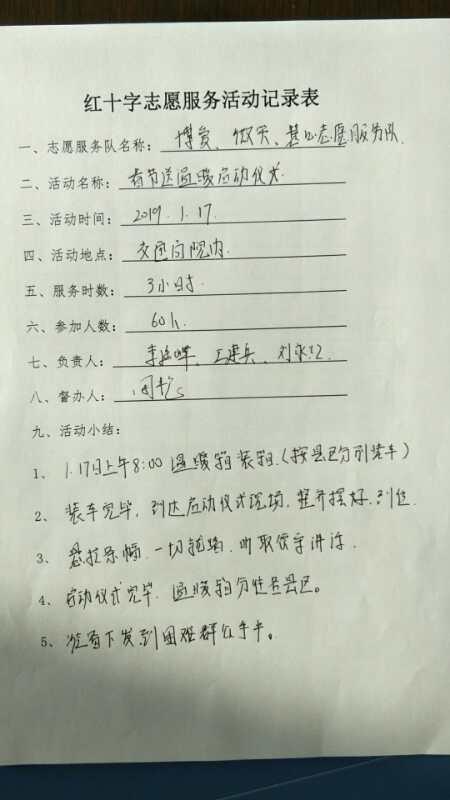 红十字志愿服务活动记录表
一、志愿服务队名称：博爱、微天、基山志愿服务队
二、活动名称：春节送温暖启动仪式
三、活动时间：2019.1.17
四、活动地点：交运局院内
五、服务时数：3小时
六、参加人数：60人
七、负责人：李 、王建兵、刘永红
八、督办人：周
九、活动小结：
1、1.17日上午8:00温暖箱装箱.(按县区分别装车)
2、装车完毕，到达启动仪式现场，整齐摆好.到位
3、悬拉条幅.一切 .听取领导讲话.
4、启动仪式完毕.温暖箱分往各县区。
5、 下发到困难群众手中。